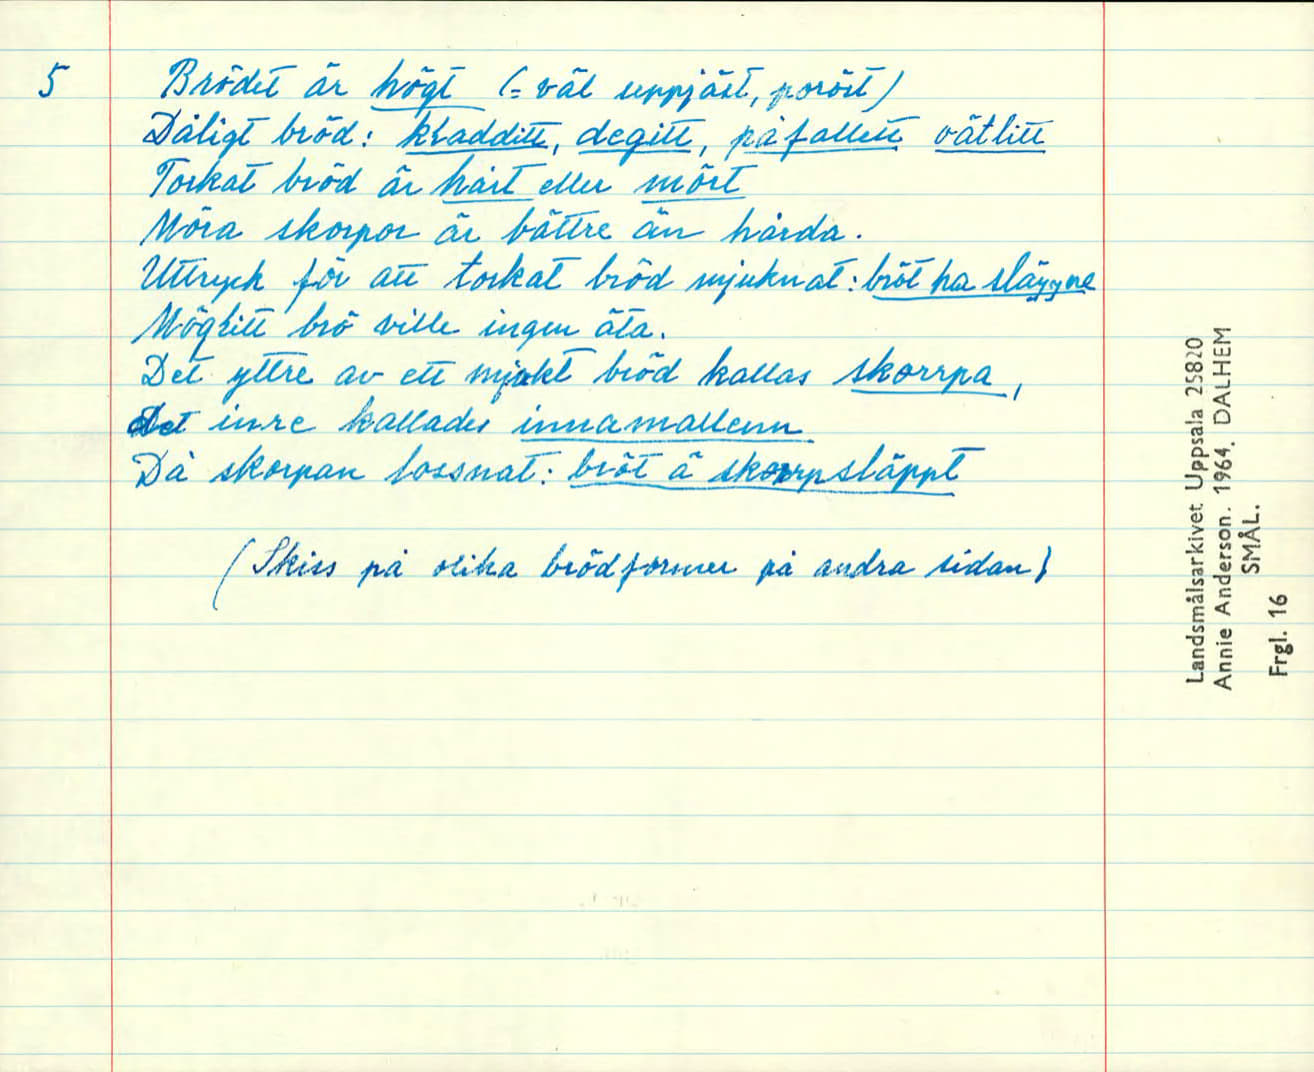 5 Brödet är högt (= väl uppjäst, poröst)
Dåligt bröd: kladditt, degitt, påfallett vätlitt
Torkat bröd är hårt eller mört
Möra skorpor är bättre än hårda.
Uttryck för att torkat bröd mjuknat: bröt ha
Möglitt brö ville ingen äta.
Det yttre av ett mjukt bröd kallas skorrpa,
Det inre kallades innamallenn
Då skorpan lossnat: bröt ä skorrpsläppt
(Skiss på olika brödformer på andra sidan)
Landsmålsarkivet Uppsala 25820
Annie Anderson. 1964. DALHEM
SMÅL.
Frgl. 16